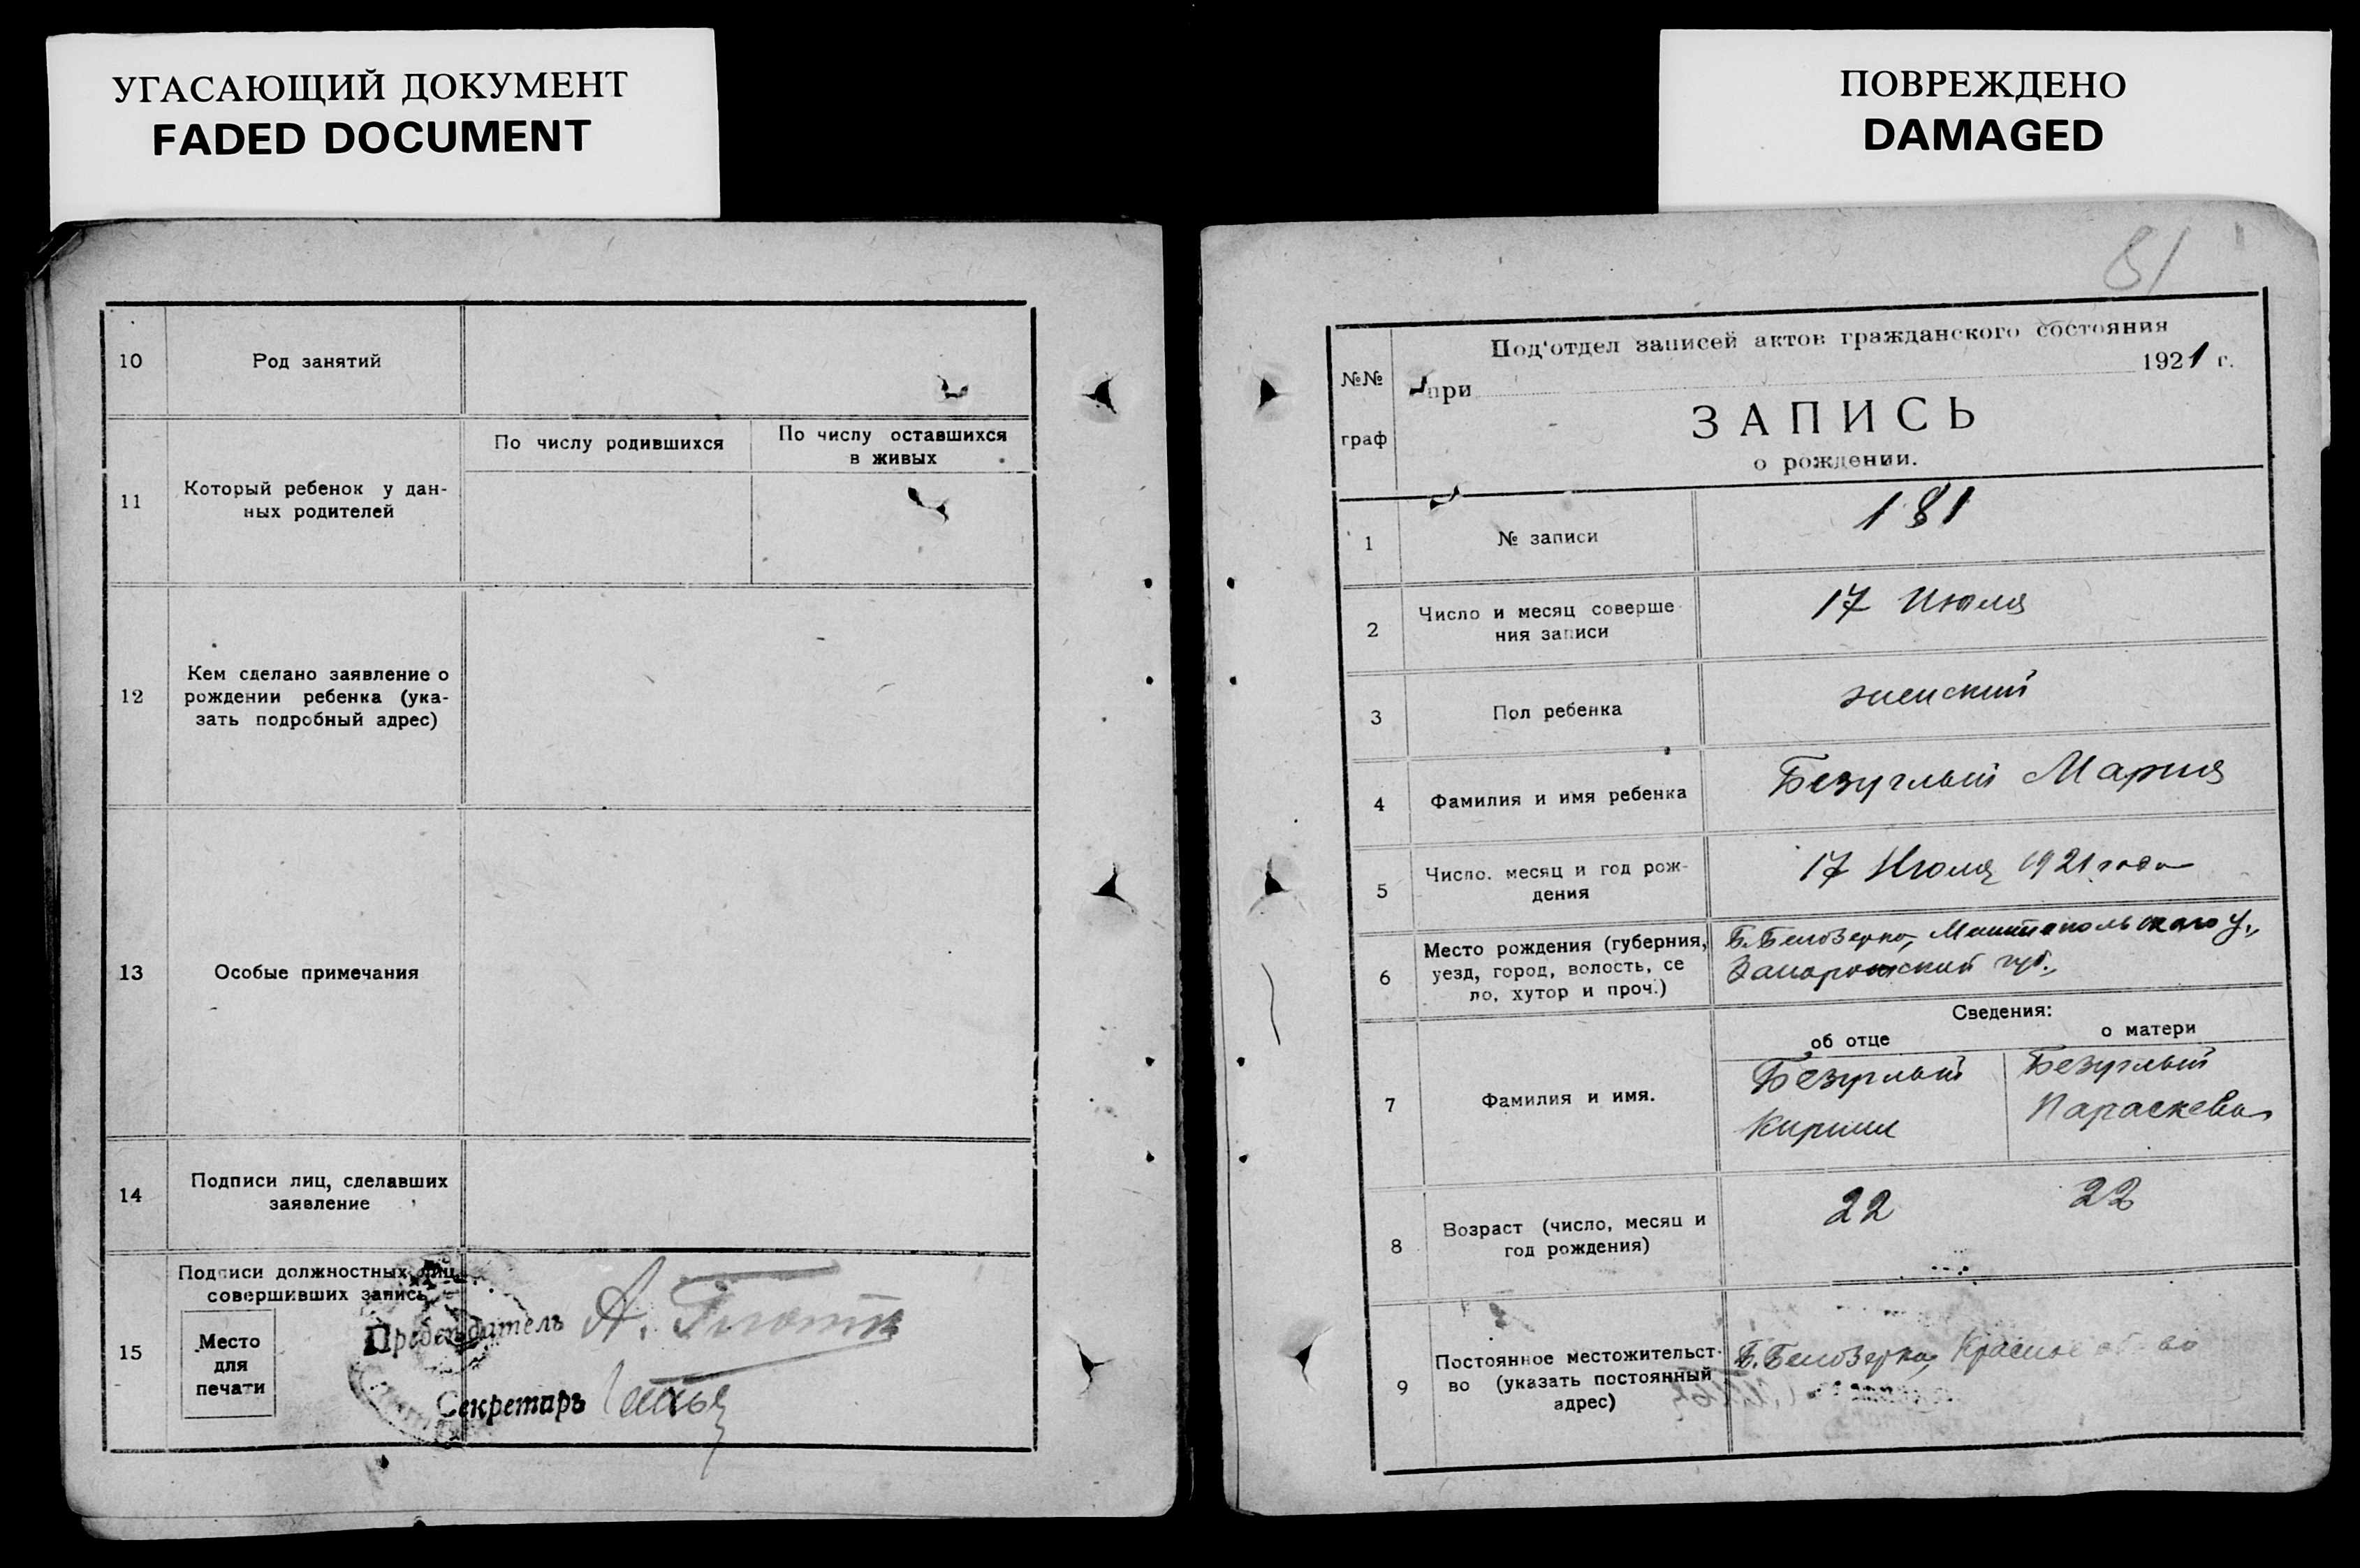 УГАСАЮЩИЙ ДОКУМЕНТ
FADED DOCUMENT
ПОВРЕЖДЕНО
DAMAGED
10
Род занятий
11
Который ребенок у дан-
ных родителей
По числу родившихся
По числу оставшихся
в живых
12
Кем сделано заявление о
рождении ребенка (ука-
зать подробный адрес)
13
Особые примечания
14
Подписи лиц, сделавших
заявление
15
Подписи должностных лиц,
совершивших запись
Место
для
печати
Председатель А.
Секретарь
81
№№
граф
Под'отдел записей актов гражданского состояния
при 1921 г.
ЗАПИСЬ
о рождении.
1
№ записи
181
2
Число и месяц соверше-
ния записи
17 Июля
3
Пол ребенка
женский
4
Фамилия и имя ребенка
Безуглый Мария
5
Число. месяц и год рож-
дения
17 Июля 1921 года
6
Место рождения (губерния,
уезд, город, волость, се
ло, хутор и проч.)
Б. Белозерка, Мелитопольского у.,
Запорожской губ.,
Сведения:
об отце
о матери
7
Фамилия и имя.
Безуглый
Кирилл
Безуглый
Параскева
8
Возраст (число, месяц и
год рождения)
22
22
9
Постоянное местожительст-
во (указать постоянный
адрес)
Б. Белозерка,